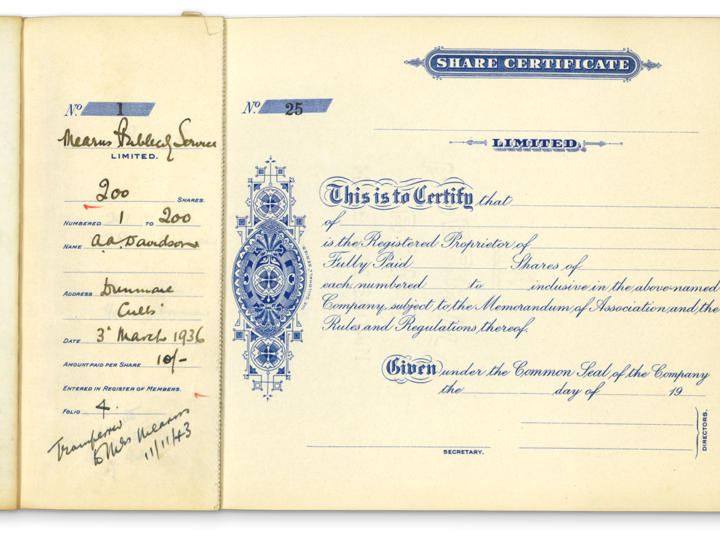 Nº 1
Mearns Publicity Service
LIMITED.
200 SHARES.
NUMBERED 1 TO 200
NAME A.A. Davidson
ADDRESS Dunmore
Cults
DATE 3" March 1936
AMOUNT PAID PER SHARE 10/-
ENTERED IN REGISTER OF MEMBERS.
FOLIO 4.
Transferred
to Mrs Mearns
11/11/43
SHARE CERTIFICATE
Nº 25
LIMITED.
This is to Certify that
of
is the Registered Proprietor of
Fully Paid Shares of
each numbered to inclusive in the above-named
Company, subject to the Memorandum of Association and the
Rules and Regulations thereof.
Given under the Common Seal of the Company
the day of 19
SECRETARY.
DIRECTORS.